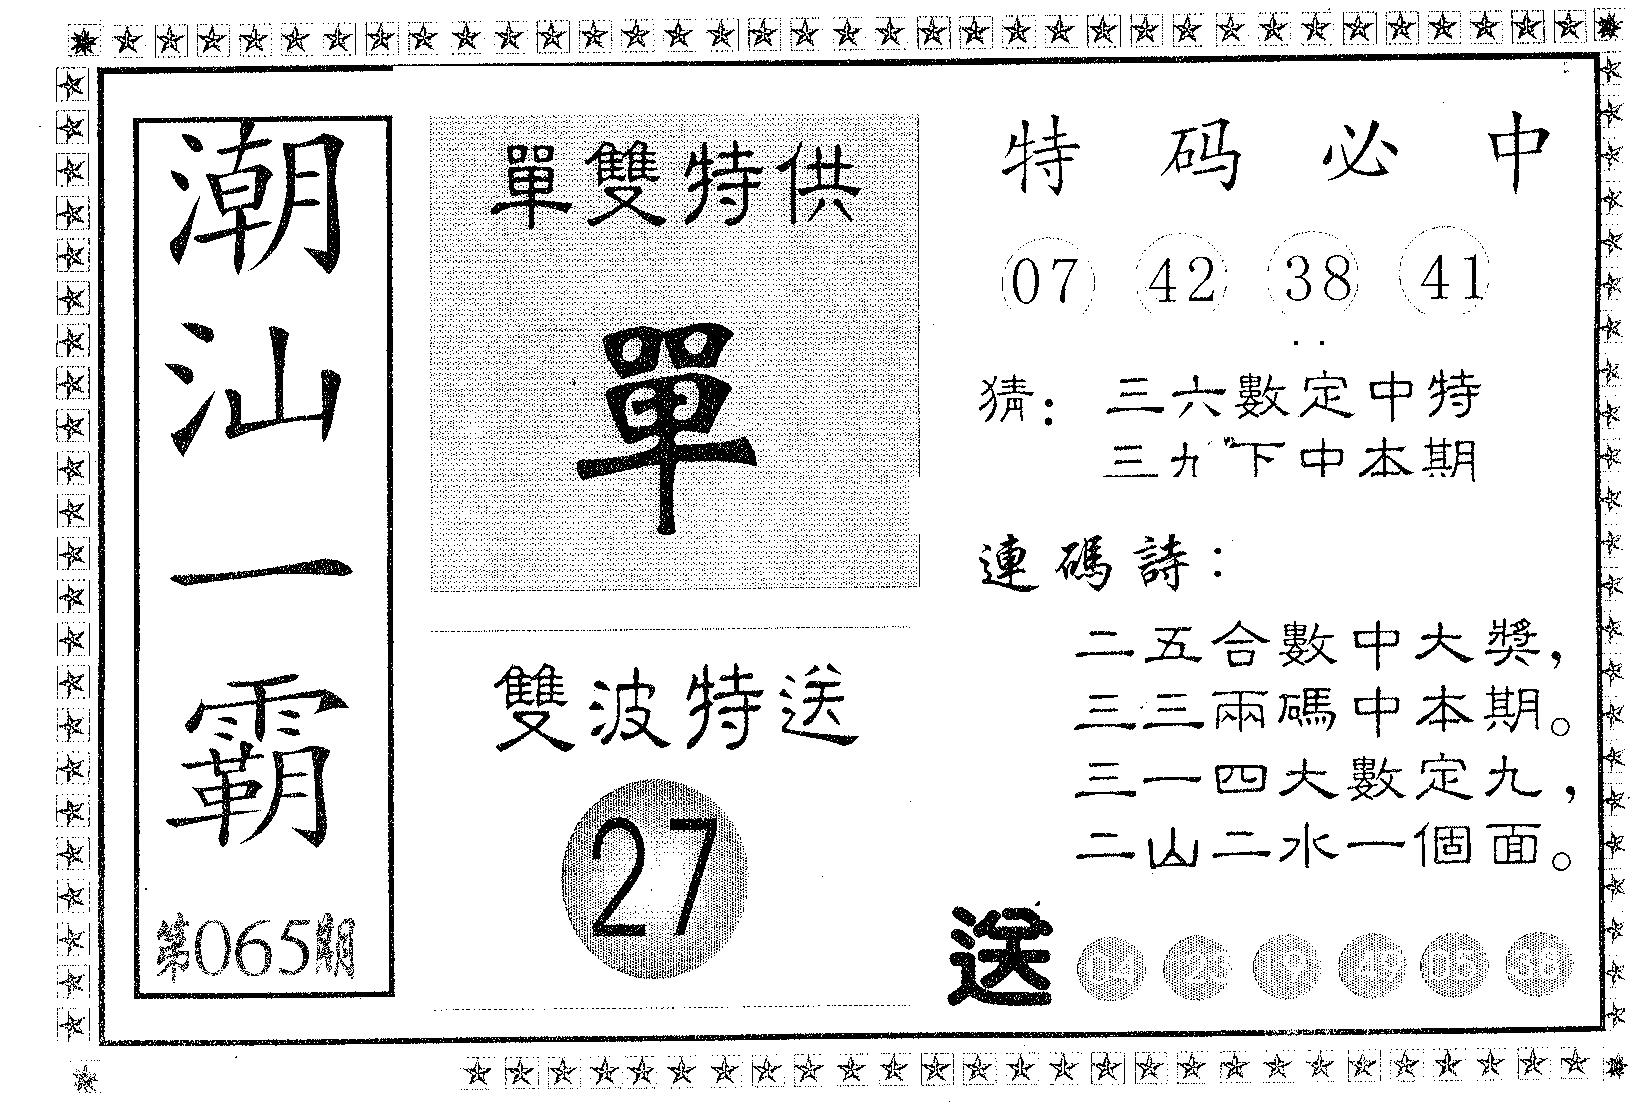 潮汕一霸
第065期
單雙特供
單
雙波特送
27
特码必中
07 42 38 41
猜：三六數定中特
三九下中本期
連碼詩：
二五合數中大獎，
三三兩碼中本期。
三一四大數定九，
二山二水一個面。
送